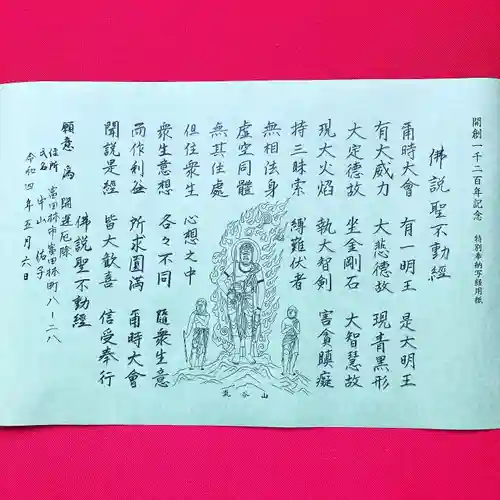 開創一千二百年記念 特別奉納写経用紙
佛説聖不動経
爾時大會 有一明王 是大明王
有大威力 大悲徳故 現青黒形
大定徳故 坐金剛石 大智慧故
現大火焔 執大智劍 害貪瞋癡
持三昧索 縛難伏者
無相法身
虚空同體
無其住處
但住衆生 心想之中
衆生意想 各々不同 隨衆生意
而作利益 所求圓満 爾時大會
聞説是経 皆大歡喜 信受奉行
佛説聖不動経
願意 為 開運厄除
住所 富田林市富田林町八ー二八
氏名 中山 佑子
令和四年五月六日